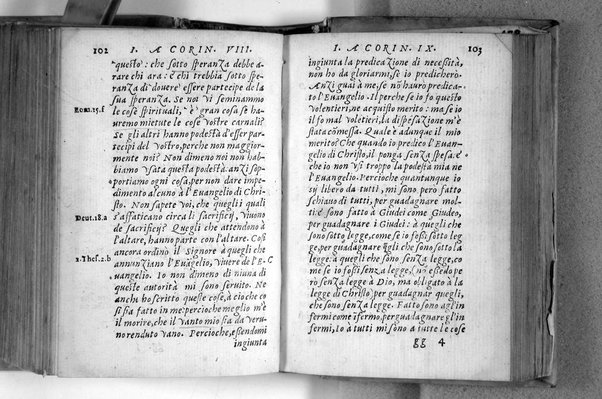 102 I. A CORIN. VIII.
questo: che sotto speranza debbe a-
rare chi ara: e chi trebbia sotto spe-
ranza di dovere esser partecipe de la
sua speranza. Se noi vi seminammo
Rom.15.f le cose spirituali, è gran cosa se ha-
uremo mietute le cose vostre carnali?
Se gli altri hanno podestà d'esser par-
tecipi del vostro, perche non maggior-
mente noi? Non dimeno noi non hab-
biamo vsata questa podestà. anzi sop-
portiamo ogni cosa, per non dare impe-
dimento alcuno à l'Euangelio di Chri-
sto. Non sapete voi, che quegli quali
Deut.18.a s'affaticano circa li sacrificij, viuono
de sacrificij? Quegli che attendono à
l'altare, hanno parte con l'altare. Cosi
ancora ordinò il Signore à quegli che
2.Thes.2.b annunziano l'Euāgelio, viuere de l'E- C
uangelio. Io non dimeno di niuna di
queste autorità mi sono seruito. Ne
anchi ho scritto queste cose, à cioche co
si sia fatto in me: percioche meglio m'è
il morire, che il vanto mio sia da veru-
no renduto vano. Percioche, essendomi
ingiunta
I. A CORIN. IX. 103
ingiunta la predicazione di necessità,
non ho da gloriarmi, se io predicherò.
Anzi guai à me, se nō hauro predica-
to l'Euangelio. Il perche se io fo questo
volentieri, ne acquisto merito: ma se io
il fo mal volētieri, la dispēsaziō m'è
stata cōmessa. Quale è adunque il mio
merito? Che quando io predico l'Euan-
gelio di Christo, il ponga senza spesa. e
che io non vsi troppo la podestà mia ne
l'Euangelio. Percioche quantunque io
sij libero da tutti, mi sono però fatto
schiauo di tutti, per guadagnare mol-
ti: e sono fatto à Giudei come Giudeo,
per guadagnare i Giudei: à quegli che
sono sotto legge, come se io fossi sotto leg
ge, per guadagnare egli che sono sotto la
legge: à quegli che sono senza legge, co-
me se io fossi senza legge, (nō essēdo pe
rò senza legge à Dio, ma obligato à la
legge di Christo) per guadagnar quegli,
che sono senza legge. Fatto sono agl'in
fermi come īfermo, per guadagnare gl'in
fermi, Io à tutti mi sono à tutte le cose
gg 4